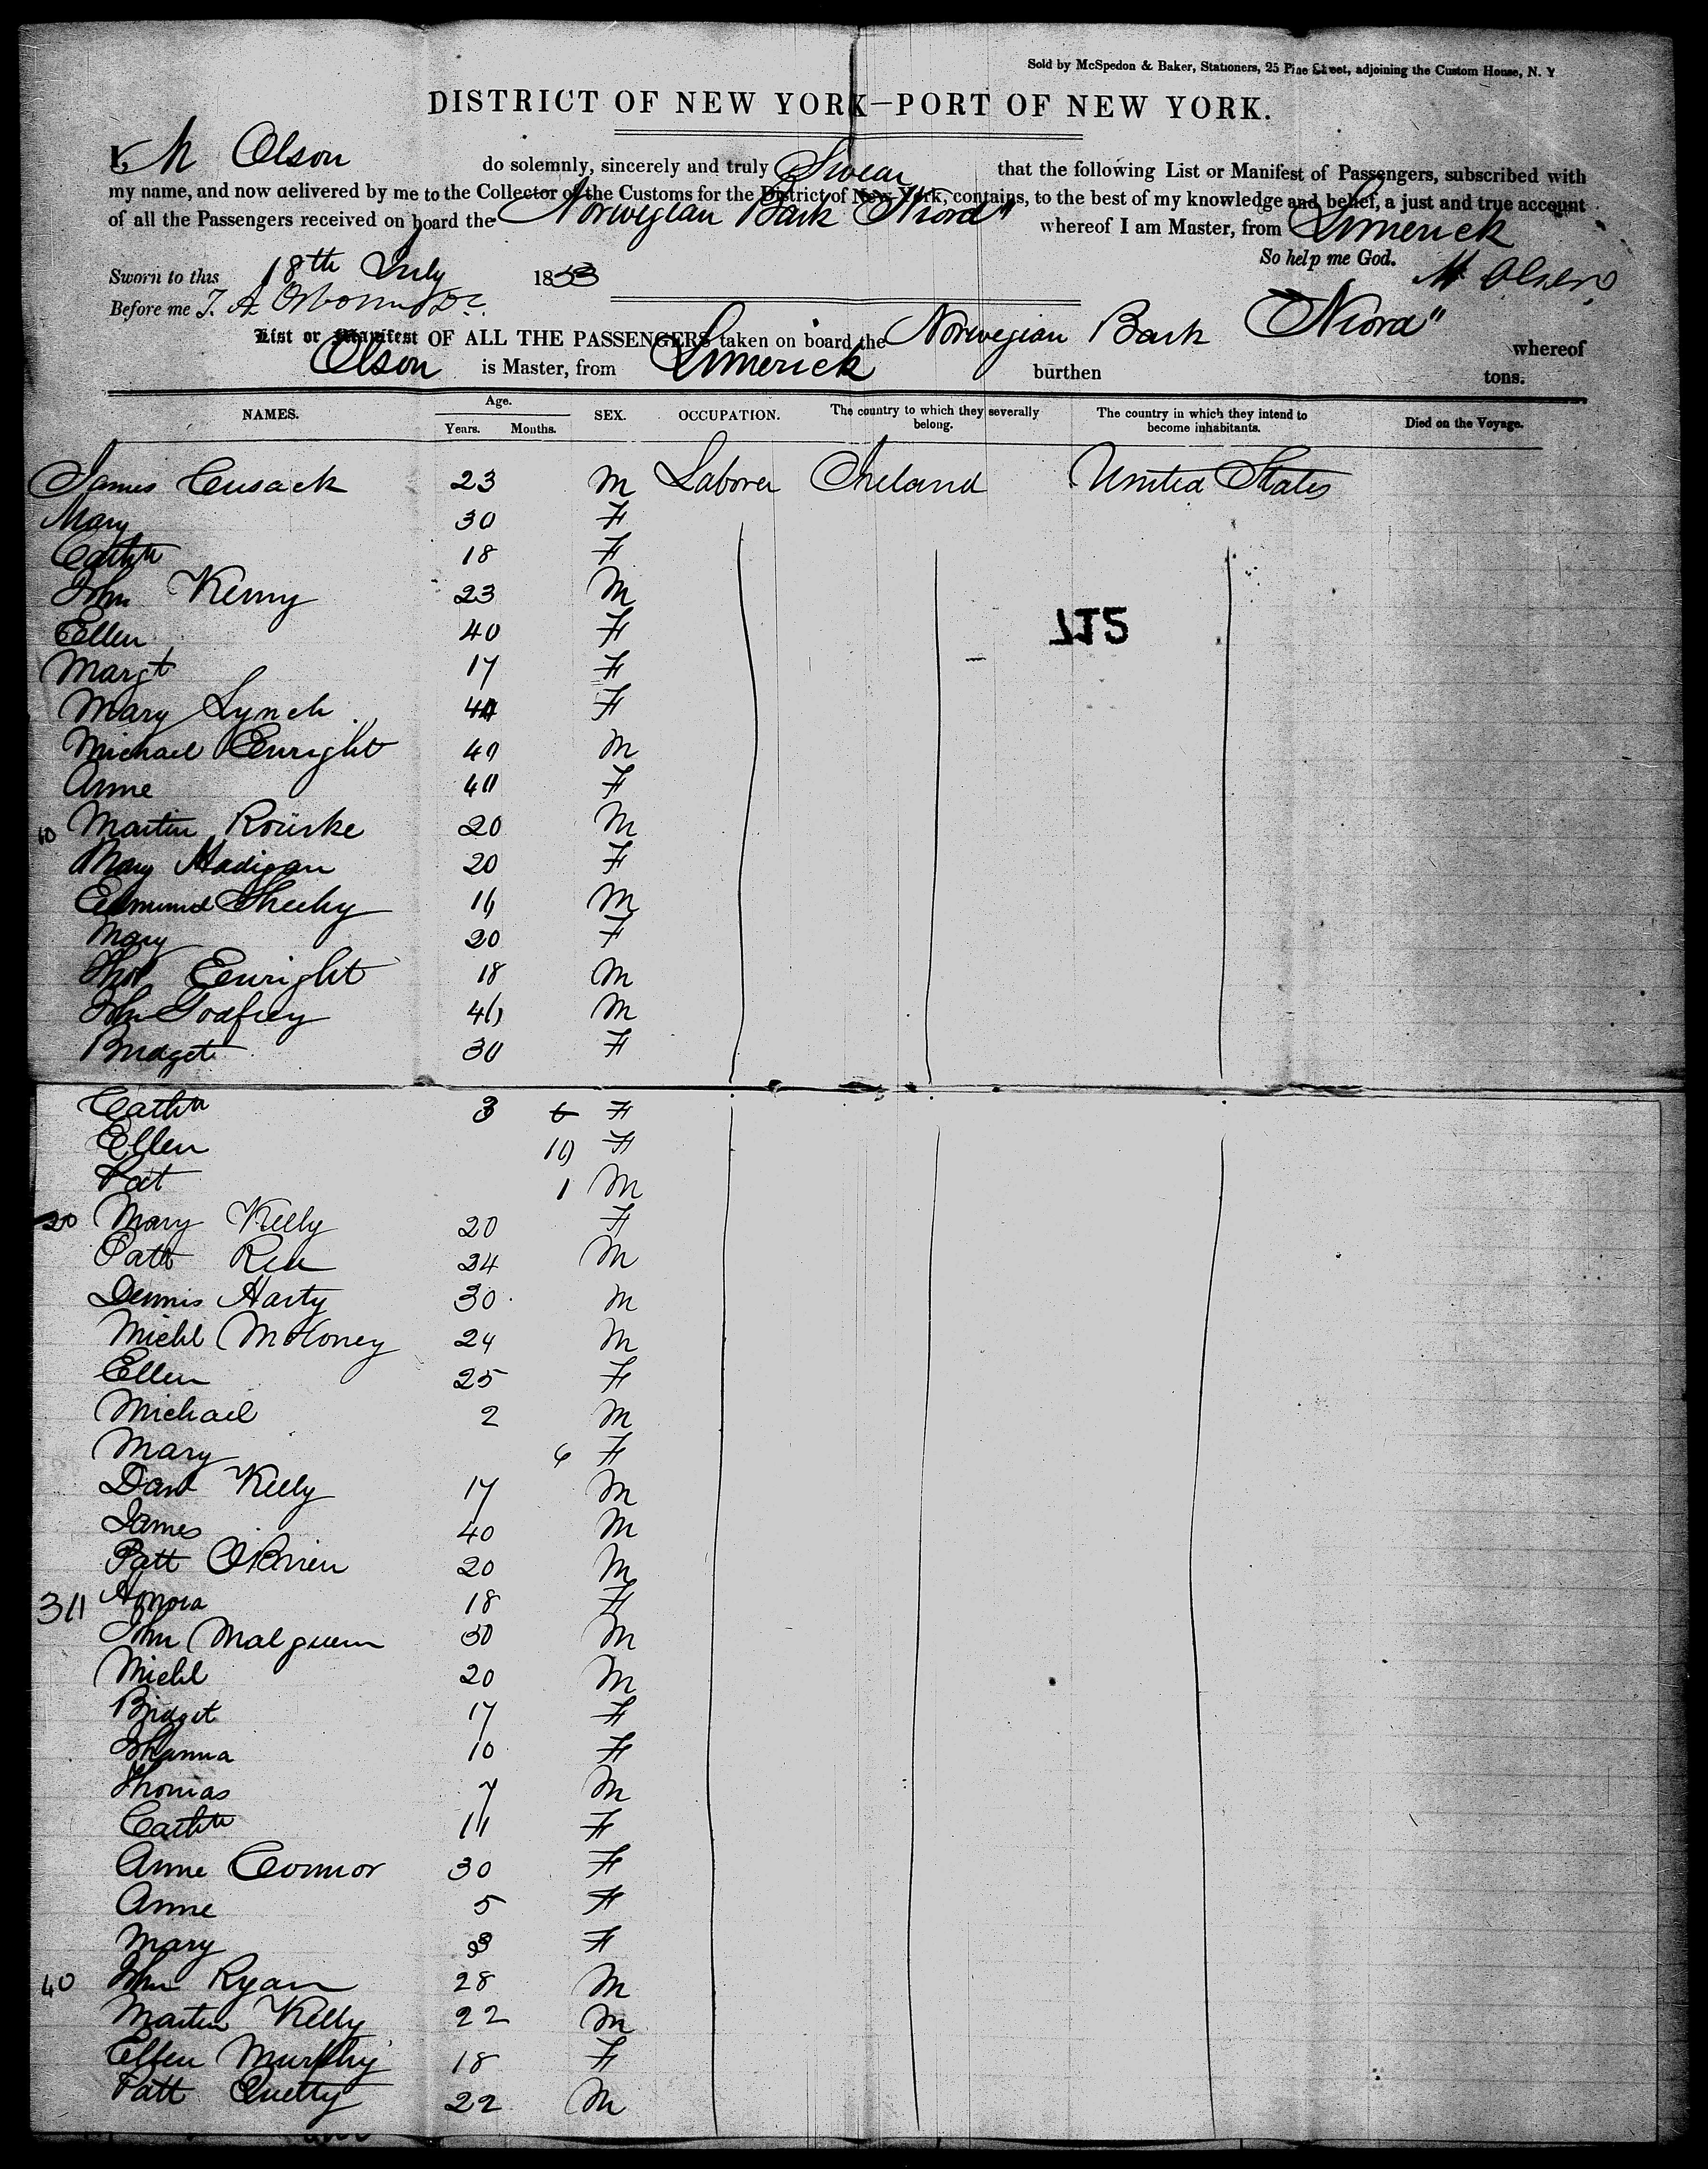 Sold by McSpedon & Baker, Stationers, 25 Pine Street, adjoining the Custom House, N. Y
DISTRICT OF NEW YORK—PORT OF NEW YORK.
I, M Olson do solemnly, sincerely and truly Swear that the following List or Manifest of Passengers, subscribed with
my name, and now delivered by me to the Collector of the Customs for the District of New York, contains, to the best of my knowledge and belief, a just and true account
of all the Passengers received on board the Norwegian Bark "Niord" whereof I am Master, from Limerick
So help me God.
Sworn to this 18th July 1853 M Olsen
Before me
List or Manifest OF ALL THE PASSENGERS taken on board the Norwegian Bark "Niord" whereof
Olson is Master, from Limerick burthen tons.
NAMES. Age. Years. Months. SEX. OCCUPATION. The country to which they severally belong. The country in which they intend to become inhabitants. Died on the Voyage.
James Cusack 23 M Laborer Ireland United States
Mary 30 F
Cathn 18 F
John Kenny 23 M
Ellen 40 F
Margt 17 F
Mary Lynch F
Michael Enright 40 M
Anne 40 F
10 Martin Rourke 20 M
Mary Madigan 20 F
Edmund Sheehy 16 M
Mary 20 F
Thos Enright 18 M
John Godfrey 40 M
Bridget 30 F
Cathn 3 6 F
Ellen 10 F
Pat 1 M
20 Mary Kelly 20 F
Patt 24 M
Dennis Harty 30 M
Michl Moloney 24 M
Ellen 25 F
Michael 2 M
Mary 6 F
Danl Kelly 17 M
James 40 M
Patt OBrien 20 M
30 Honora 18 F
John 30 M
Michl 20 M
Bridget 17 F
Johanna 10 F
Thomas 7 M
Cathn 11 F
Anne Connor 30 F
Anne 5 F
Mary 3 F
40 John Ryan 28 M
Martin Kelly 22 M
Ellen Murphy 18 F
Patt 22 M